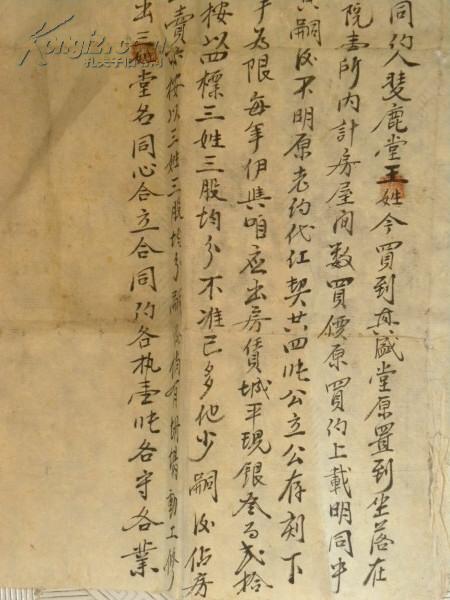 同約人斐鹿堂王姓今買到興盛堂原置到坐落在
院壹所內計房屋間数買價原買約上載明同中
嗣後不明原老約代紅契共四張公立公存刻下
年為限每年伊與咱應出房賃城平現銀叁百弍拾
按以四標三姓三股均分不准已多他少嗣後佔房
賣 按以三姓三股均分 倘有 動工修
出三 堂名同心合立合同約各执壹張各守各業
Kongfz.com
孔夫子旧书网